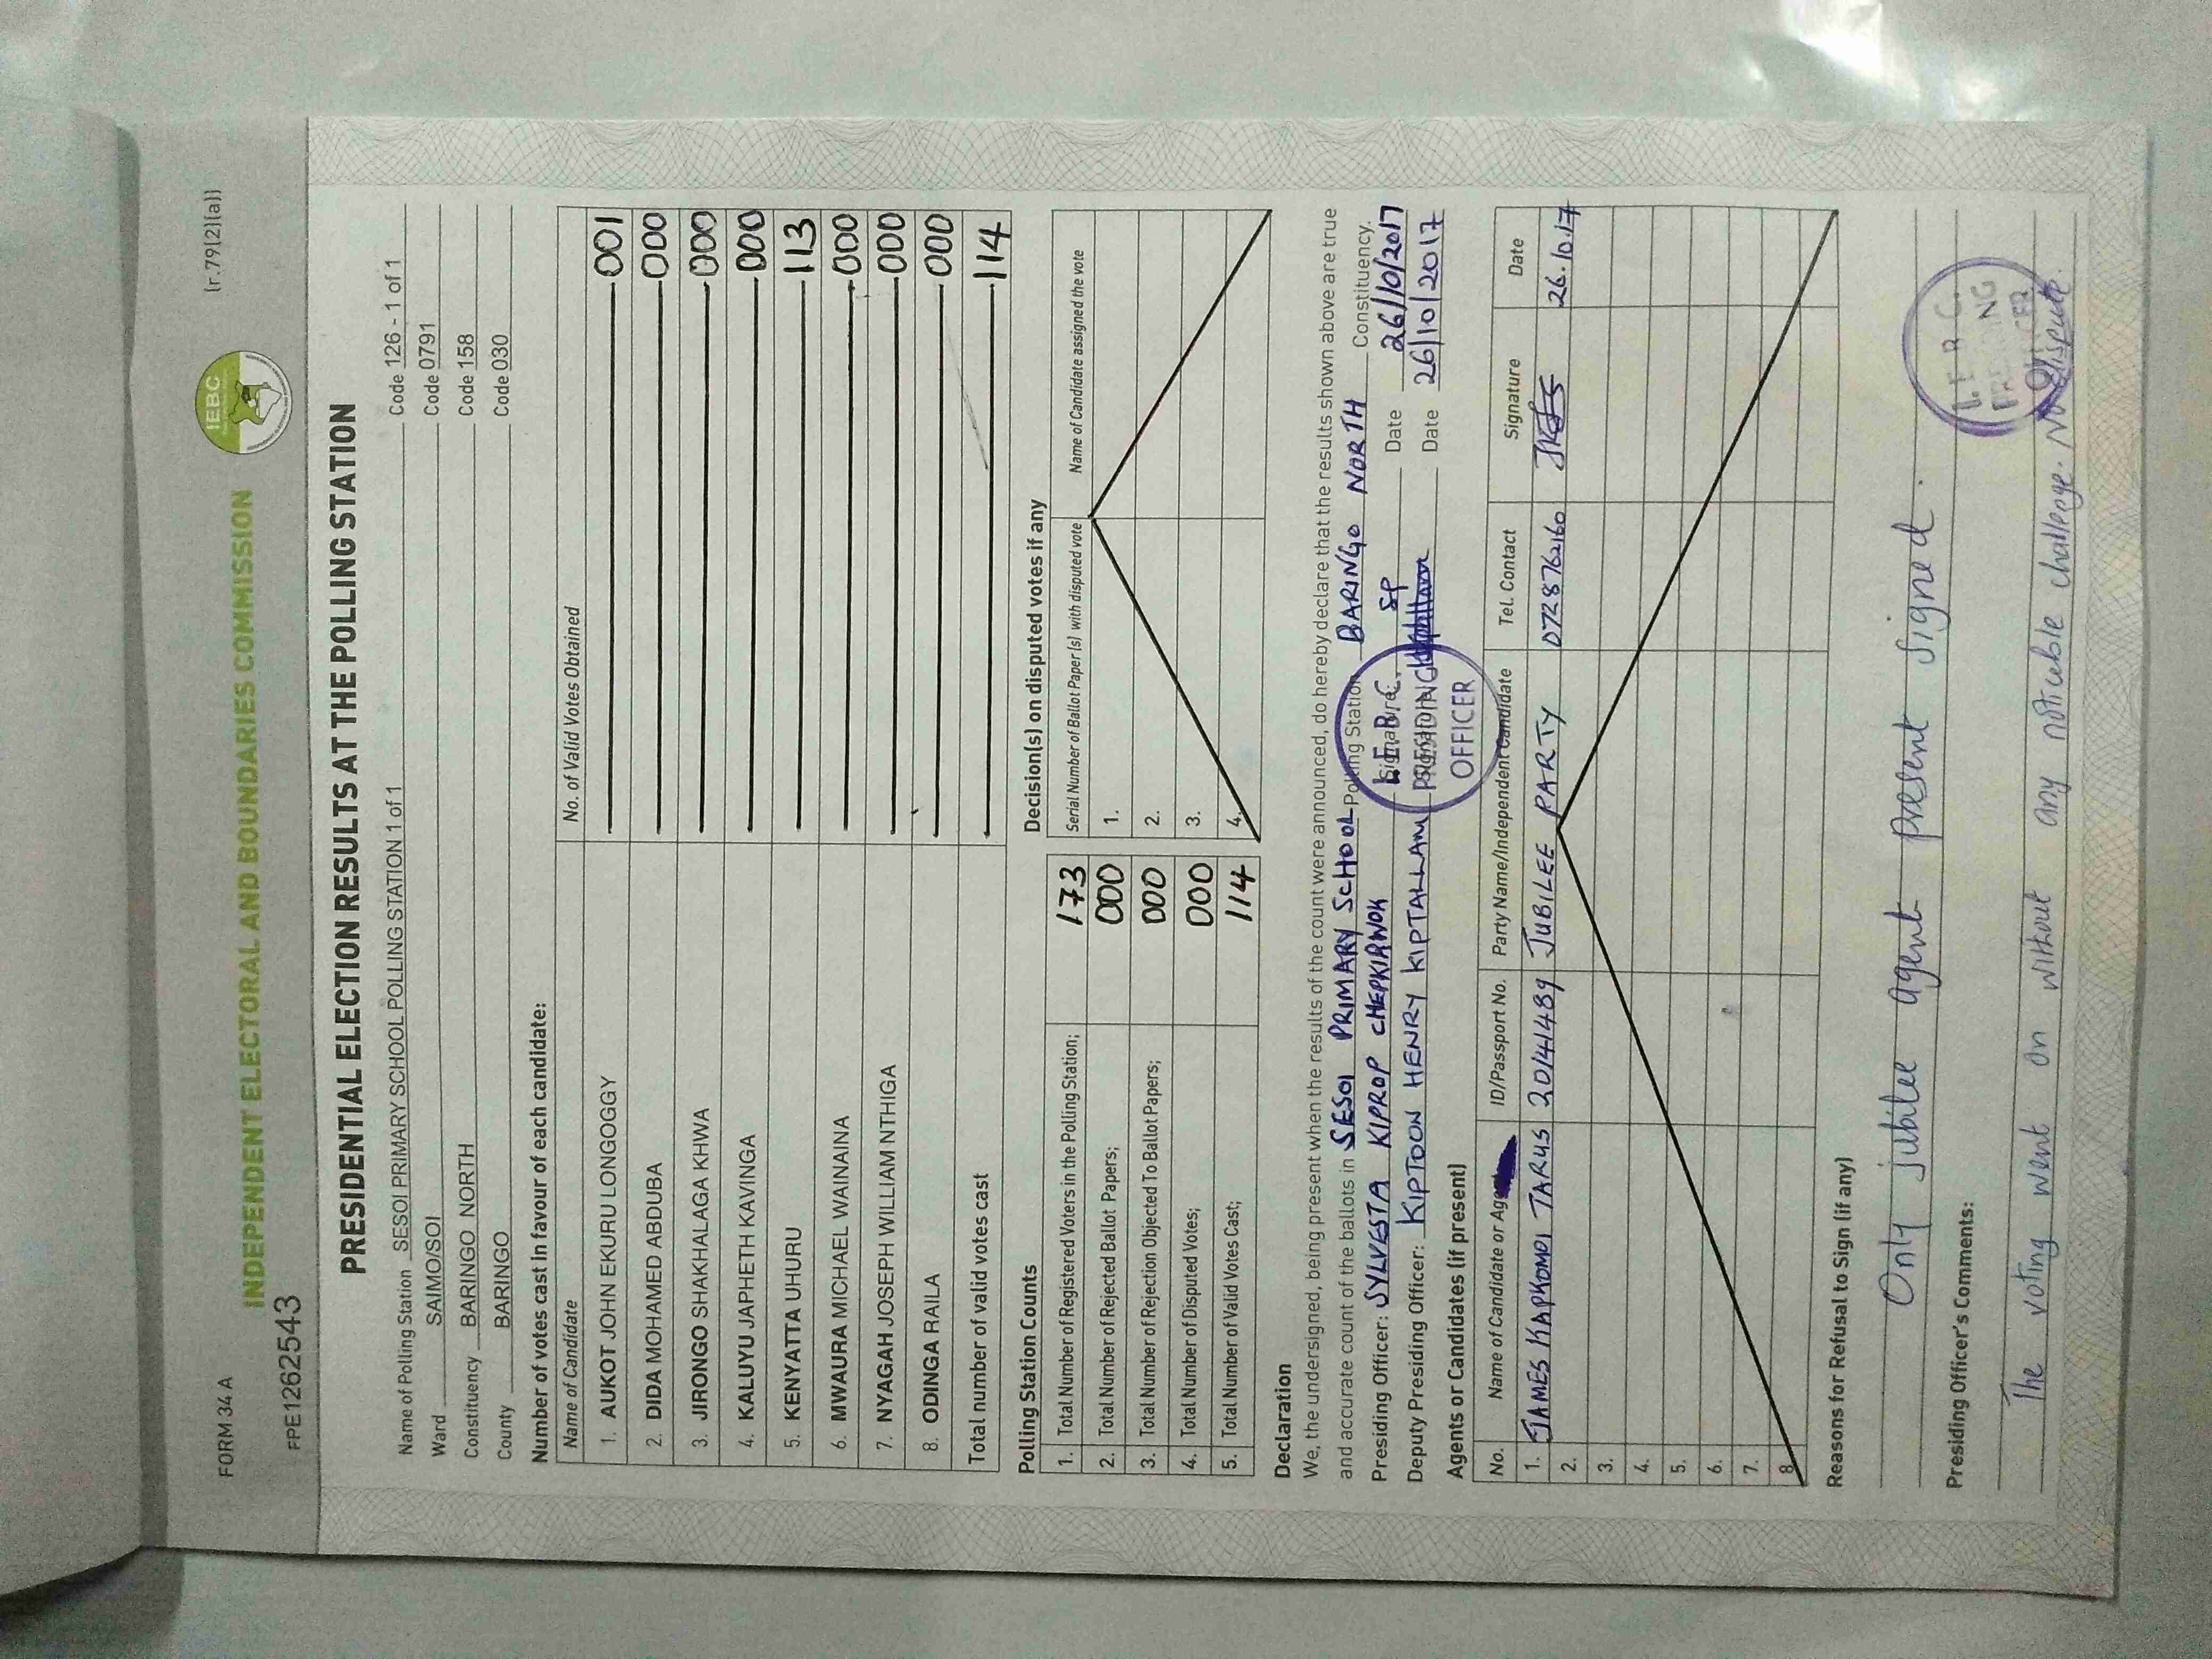 FORM 34 A
(r.79(2)(a))
IEBC
INDEPENDENT ELECTORAL AND BOUNDARIES COMMISSION
FPE1262543
PRESIDENTIAL ELECTION RESULTS AT THE POLLING STATION
Name of Polling Station SESOI PRIMARY SCHOOL POLLING STATION 1 of 1 Code 126 - 1 of 1
Ward SAIMO/SOI Code 0791
Constituency BARINGO NORTH Code 158
County BARINGO Code 030
Number of votes cast in favour of each candidate:
Name of Candidate No. of Valid Votes Obtained
1. AUKOT JOHN EKURU LONGOGGY 001
2. DIDA MOHAMED ABDUBA 000
3. JIRONGO SHAKHALAGA KHWA 000
4. KALUYU JAPHETH KAVINGA 000
5. KENYATTA UHURU 113
6. MWAURA MICHAEL WAINAINA 000
7. NYAGAH JOSEPH WILLIAM NTHIGA 000
8. ODINGA RAILA 000
Total number of valid votes cast 114
Polling Station Counts
1. Total Number of Registered Voters in the Polling Station; 173
2. Total Number of Rejected Ballot Papers; 000
3. Total Number of Rejection Objected To Ballot Papers; 000
4. Total Number of Disputed Votes; 000
5. Total Number of Valid Votes Cast; 114
Decision(s) on disputed votes if any
Serial Number of Ballot Paper (s) with disputed vote Name of Candidate assigned the vote
1.
2.
3.
4.
Declaration
We, the undersigned, being present when the results of the count were announced, do hereby declare that the results shown above are true
and accurate count of the ballots in SESOI PRIMARY SCHOOL Polling Station BARINGO NORTH Constituency.
Presiding Officer: SYLVESTA KIPROP CHEPKIRWOK Signature Date 26/10/2017
Deputy Presiding Officer: KIPTOON HENRY KIPTALLAM Signature Date 26/10/2017
I.E.B.C.
PRESIDING
OFFICER
Agents or Candidates (if present)
No. Name of Candidate or Agent ID/Passport No. Party Name/Independent Candidate Tel. Contact Signature Date
1. JAMES KAPKOMOI TARUS 20141489 JUBILEE PARTY 0728762160 26.10.17
2.
3.
4.
5.
6.
7.
8.
Reasons for Refusal to Sign (if any)
Only jubilee agent present signed.
Presiding Officer's Comments:
The voting went on without any noticeble challenge. No dispute.
I.E.B.C.
PRESIDING
OFFICER